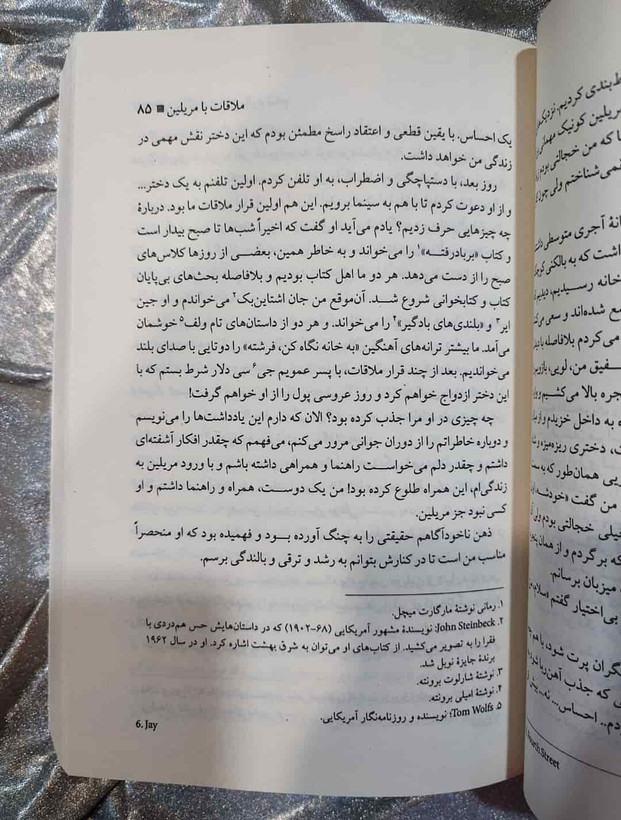 ملاقات با مریلین ■ ۸۵
یک احساس. با یقین قطعی و اعتقاد راسخ مطمئن بودم که این دختر نقش مهمی در
زندگی من خواهد داشت.
روز بعد، با دستپاچگی و اضطراب، به او تلفن کردم. اولین تلفنم به یک دختر...
و از او دعوت کردم تا با هم به سینما برویم. این هم اولین قرار ملاقات ما بود. دربارهٔ
چه چیزهایی حرف زدیم؟ یادم می‌آید او گفت که اخیراً شب‌ها تا صبح بیدار است
و کتاب «بربادرفته»۱ را می‌خواند و به خاطر همین، بعضی از روزها کلاس‌های
صبح را از دست می‌دهد. هر دو ما اهل کتاب بودیم و بلافاصله بحث‌های بی‌پایان
کتاب و کتابخوانی شروع شد. آن‌موقع من جان اشتاین‌بک۲ می‌خواندم و او جین
ایر۳ و «بلندی‌های بادگیر»۴ را می‌خواند. و هر دو از داستان‌های تام ولف۵ خوشمان
می‌آمد. ما بیشتر ترانه‌های آهنگین «به خانه نگاه کن، فرشته» را دوتایی با صدای بلند
می‌خواندیم. بعد از چند قرار ملاقات، با پسر عمویم جی۶ سی دلار شرط بستم که با
این دختر ازدواج خواهم کرد و روز عروسی پول را از او خواهم گرفت!
چه چیزی در او مرا جذب کرده بود؟ الان که دارم این یادداشت‌ها را می‌نویسم
و دوباره خاطراتم را از دوران جوانی مرور می‌کنم، می‌فهمم که چقدر افکار آشفته‌ای
داشتم و چقدر دلم می‌خواست راهنما و همراهی داشته باشم و با ورود مریلین به
زندگی‌ام، این همراه طلوع کرده بود! من یک دوست، همراه و راهنما داشتم و او
کسی نبود جز مریلین.
ذهن ناخودآگاهم حقیقتی را به چنگ آورده بود و فهمیده بود که او منحصراً
مناسب من است تا در کنارش بتوانم به رشد و ترقی و بالندگی برسم.
۱. رمانی نوشتهٔ مارگارت میچل.
۲. John Steinbeck: نویسندهٔ مشهور آمریکایی (۶۸-۱۹۰۲) که در داستان‌هایش حس هم‌دردی با
فقرا را به تصویر می‌کشید. از کتاب‌های او می‌توان به شرق بهشت اشاره کرد. او در سال ۱۹۶۲
برندهٔ جایزهٔ نوبل شد.
۳. نوشتهٔ شارلوت برونته.
۴. نوشتهٔ امیلی برونته.
۵. Tom Wolfs؛ نویسنده و روزنامه‌نگار آمریکایی.
6. Jay
ط‌بندی کردیم. نزدیک
ریلین کونیک مهمانی
ا که من خجالتی بودم
نمی‌شناختم ولی چون
انهٔ آجری متوسطی
اشت که به بالکنی کوچک
خانه رسیدیم، دیدیم
مع شده‌اند و سعی
می‌کردم بلافاصله
فیق من، لویی،
جره بالا می‌کشیم
ه به داخل خزیدم و از
ت، دختری ریزه‌میزه
یی همان‌طور که
من گفت «خودشه
خیلی خجالتی بودم ولی
که برگردم و از همان
میزبان برسانم.
بی‌اختیار گفتم «سلام،
گران پرت شود، با هم
ی که جذب آهن‌ربا
دم.. احساس...
Street